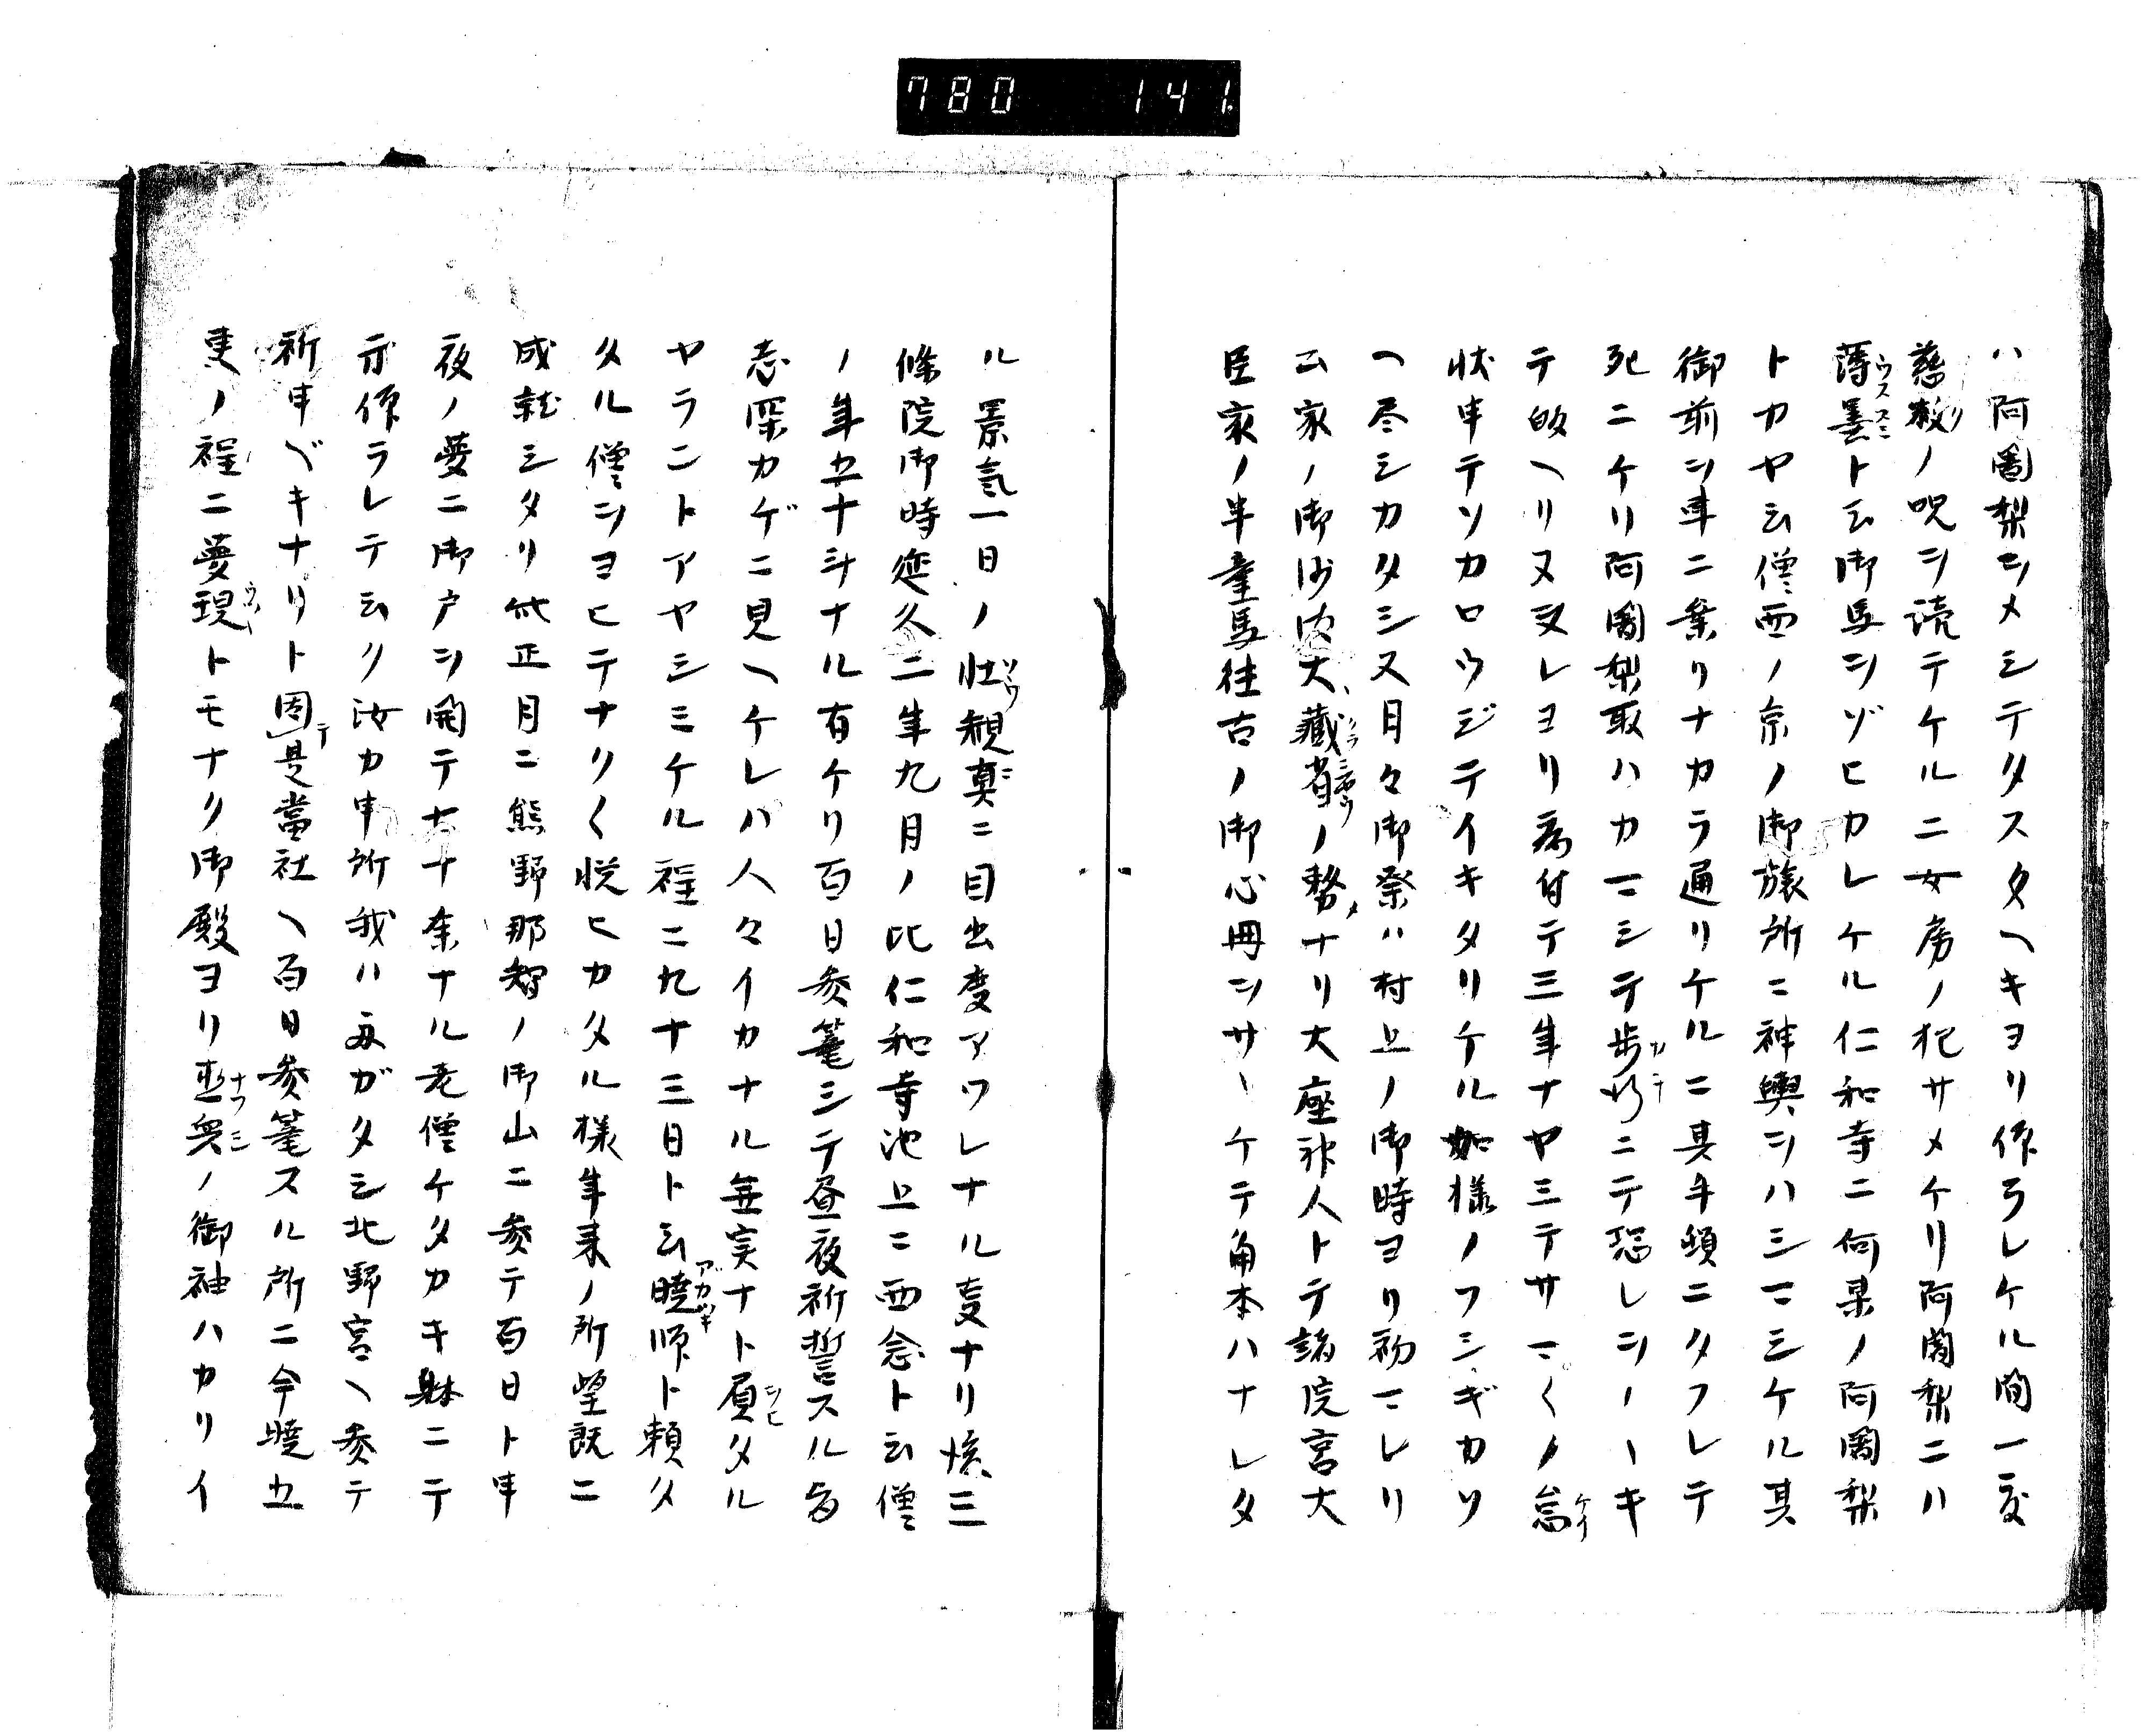 780 141
ハ阿闍梨ヲメシテタスタヘキヨリ仰ラレケル間一度
慈救ノ呪ヲ読テケルニ女房ノ犯サメケリ阿闍梨ニハ
薄墨ト云御馬ヲゾヒカレケル仁和寺ニ何某ノ阿闍梨
トカヤ云僧西ノ京ノ御旅所ニ神輿ヲハシマシケル其
御前ヲ車ニ乗リナカラ通リケルニ其牛頓ニタフレテ
死ニケリ阿闍梨取ハカマシテ歩行ニテ恐レヲノヽキ
テ皈ヘリヌ夫レヨリ病付テ三年ナヤミテサマ〱ノ怠
状申テソカロウジテイキタリケル如様ノフシギカソ
ヘ尽シカタシ又月々御祭ハ村上ノ御時ヨリ初マレリ
公家ノ御沙汰大蔵省ノ勢ナリ大座神人トテ諸院宮大
臣家ノ牛童馬往古ノ御心冊ヲサヽケテ角本ハナレタ
ル景気一日ノ壮観真ニ目出度アワレナル事ナリ後三
條院御時延久二年九月ノ比仁和寺池上ニ西念ト云僧
ノ年五十斗ナル有ケリ百日参篭シテ昼夜祈誓スル旨
志深カゲニ見ヘケレハ人々イカナル無実ナト屓タル
ヤラントアヤシミケル程ニ九十三日ト云暁順ト頼ク
タル僧ヲヨヒテナク〱悦ヒカタル様年来ノ所望既ニ
成就シタリ此正月ニ熊野那智ノ御山ニ参テ百日ト申
夜ノ夢ニ御戸ヲ開テ七十余ナル老僧ケタカキ躰ニテ
示仰ラレテ云ク汝カ申所我ハ及ガタシ北野宮ヘ参テ
祈申ベキナリト因是當社ヘ百日参篭スル所ニ今暁五
更ノ程ニ夢現トモナク御殿ヨリ直衣ノ御袖ハカリイ